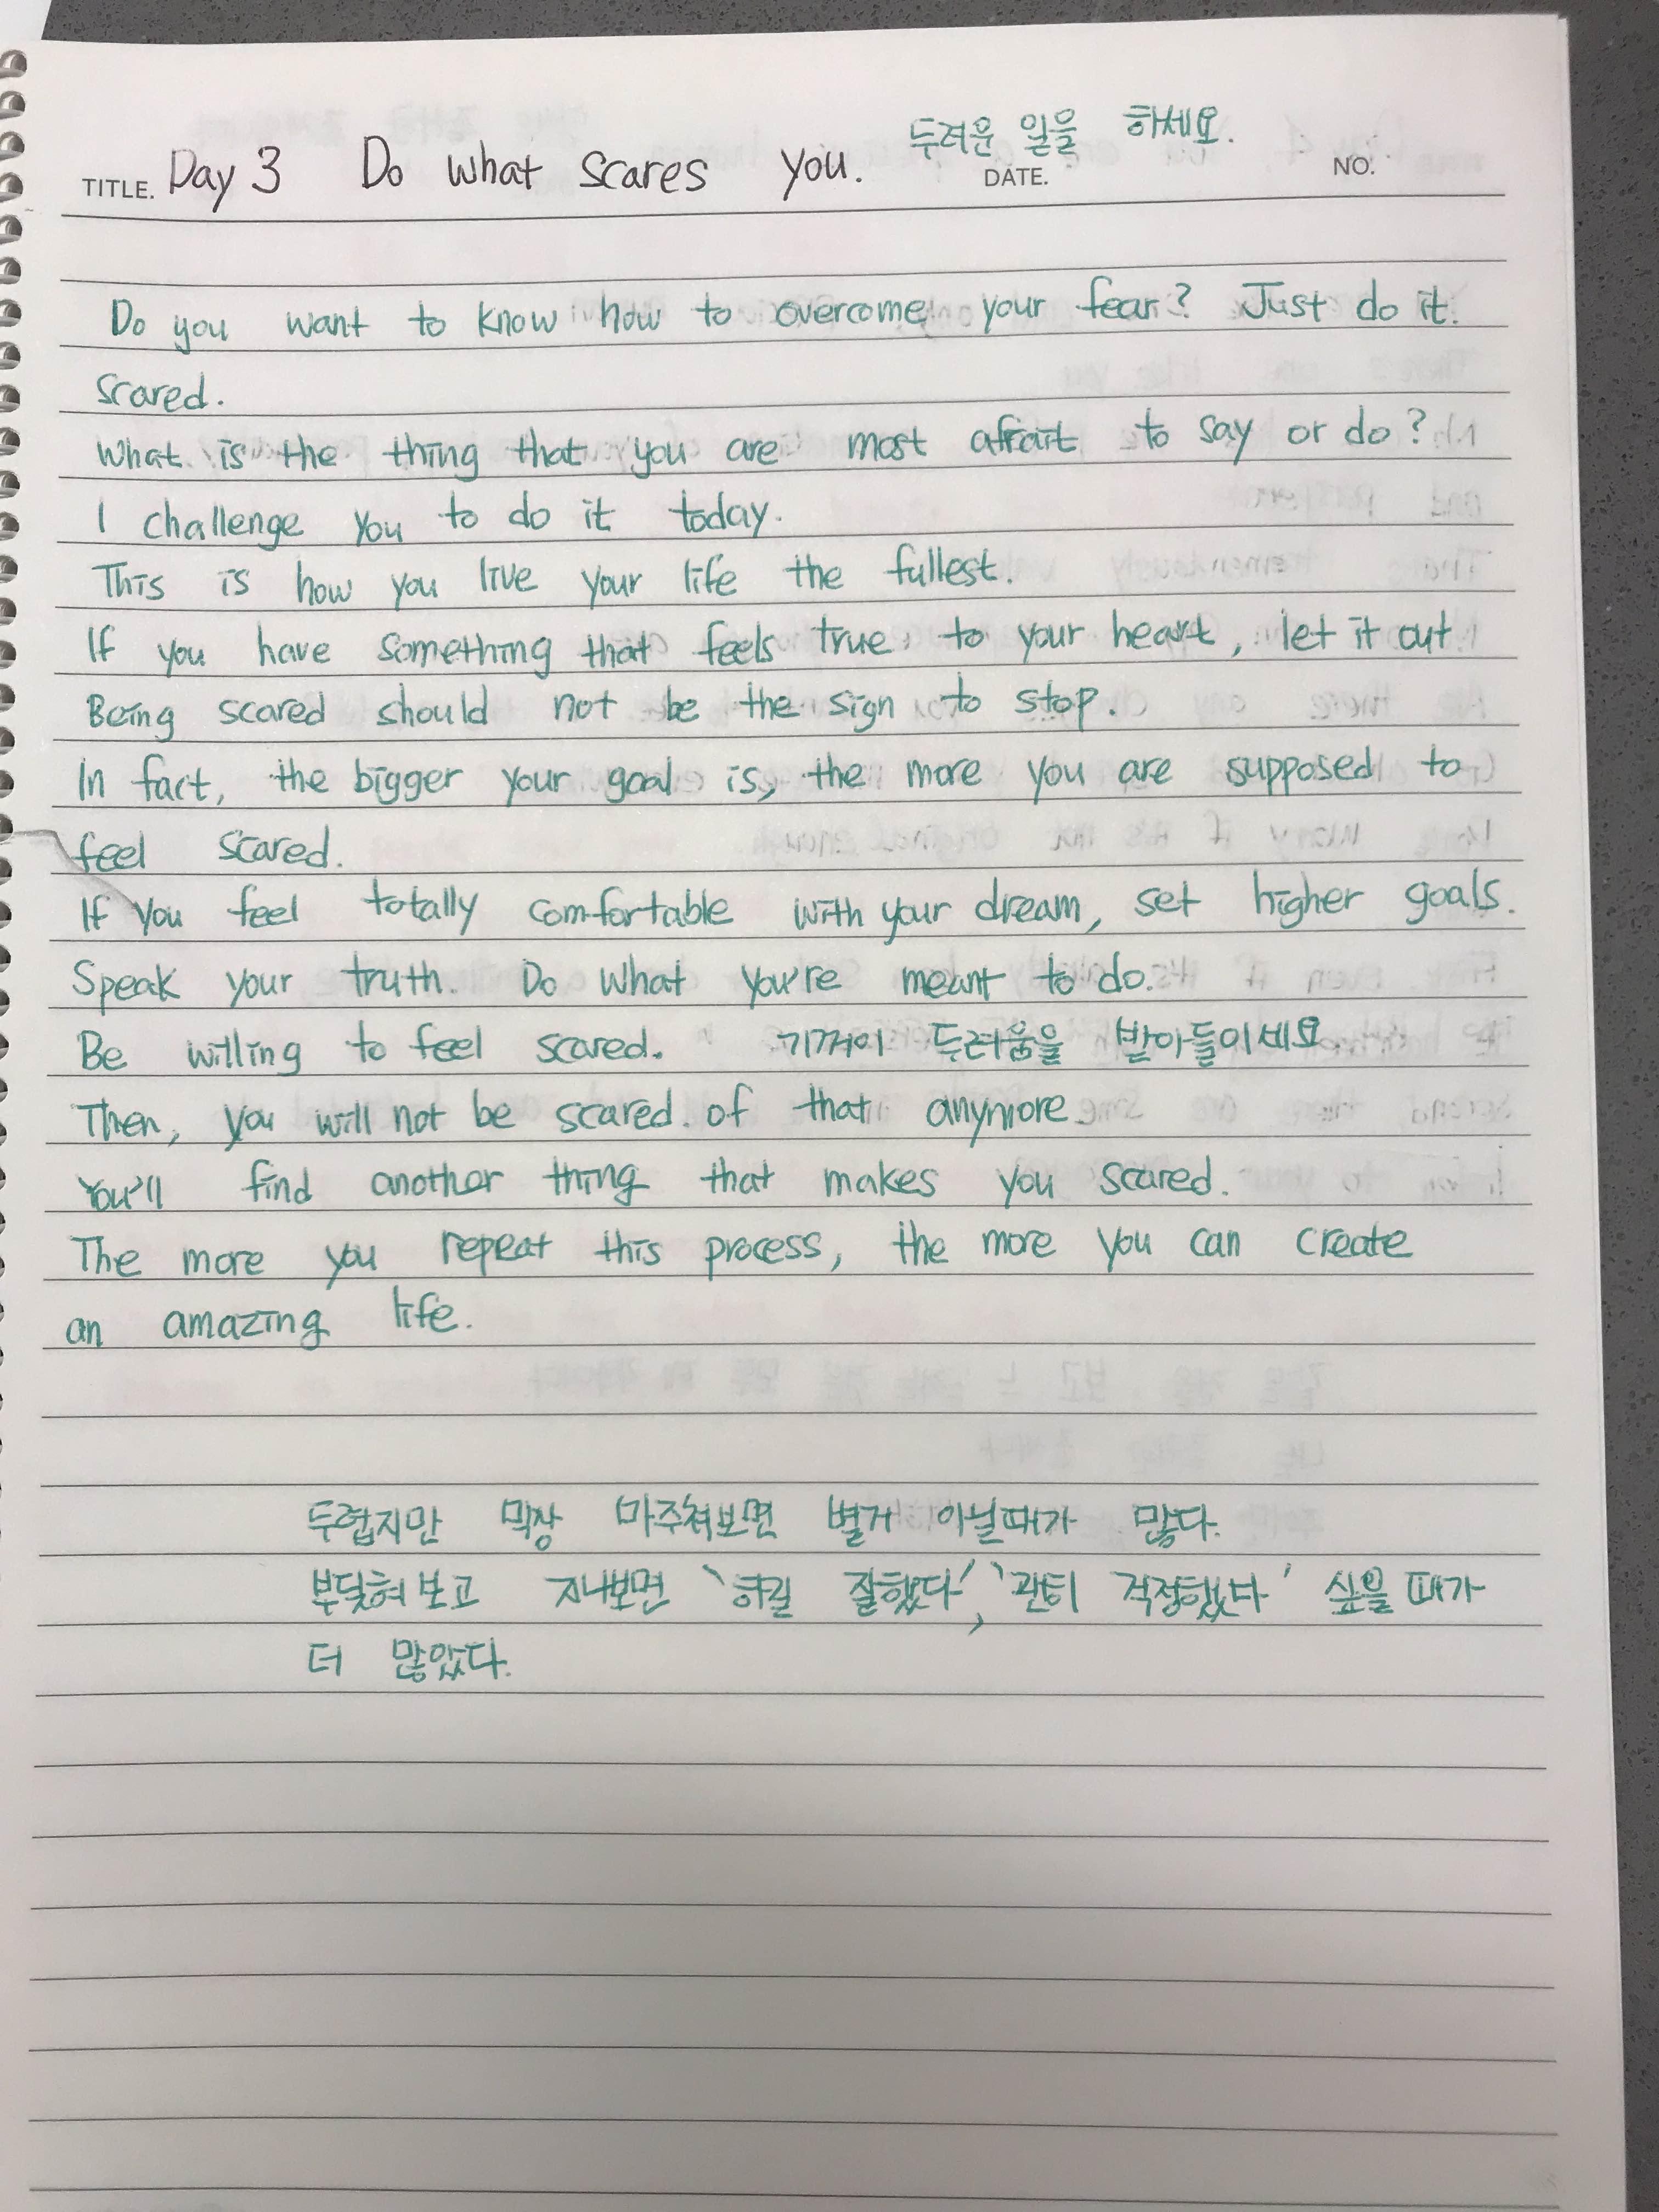 두려운 일을 하세요.
TITLE. Day 3 Do what scares you. DATE. NO.
Do you want to know how to overcome your fear? Just do it.
scared.
What is the thing that you are most afrait to say or do?
I challenge you to do it today.
This is how you live your life the fullest.
If you have something that feels true to your heart, let it out
Being scared should not be the sign to stop.
In fact, the bigger your goal is, the more you are supposed to
feel scared.
If you feel totally comfortable with your dream, set higher goals.
Speak your truth. Do what you're meant to do.
Be willing to feel scared. 기꺼이 두려움을 받아들이세요
Then, you will not be scared of that anymore
You'll find another thing that makes you scared.
The more you repeat this process, the more you can create
an amazing life.
두렵지만 막상 마주쳐보면 별거 아닐때가 많다.
부딪혀보고 지나보면 '하길 잘했다', '괜히 걱정했다' 싶을 때가
더 많았다.